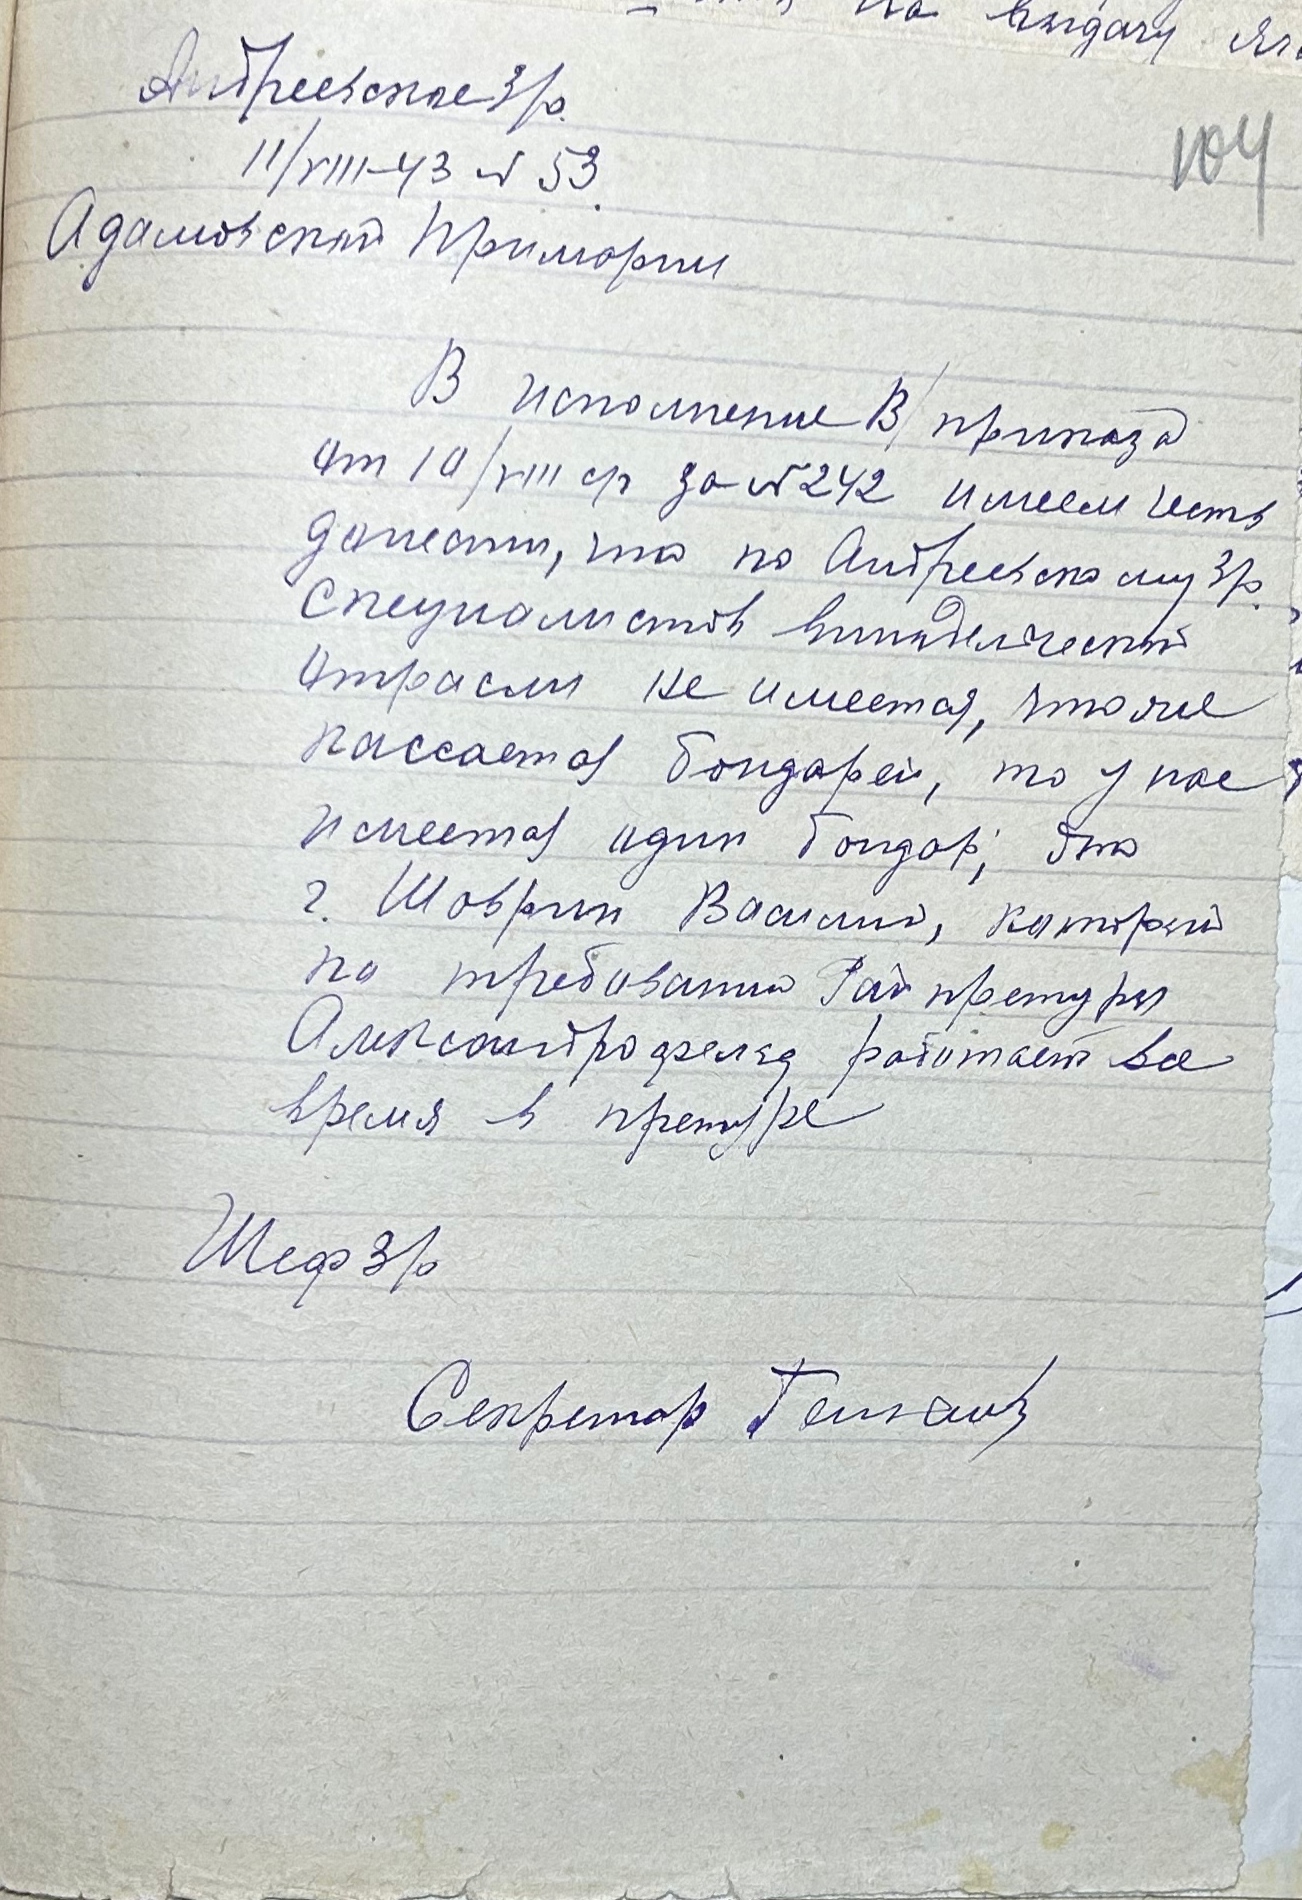 на выдачу
Андреевское з/р.
11/VIII-43 № 53.
104
Адамовской Примории
В исполнение В/приказа
от 10/VIII с/г за № 242 имеем честь
донести, что по Андреевскому з/р.
специалистов винодельческой
отрасли не имеется, что же
кассается бондарей, то у нас
имеется один бондар, это
г. Шаврин Василий, который
по требованию Райпретуры
Александрофельд работает все
время в претуре
Шеф з/р
Секретар